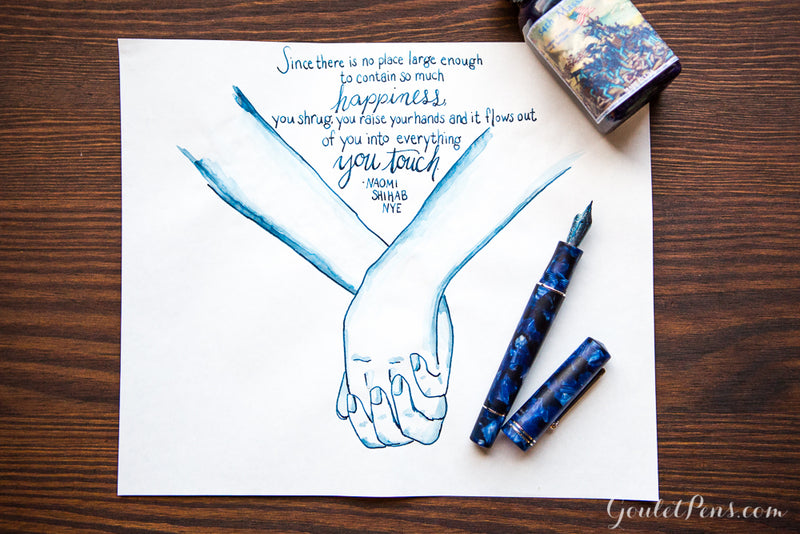 Since there is no place large enough
to contain so much
happiness,
you shrug, you raise your hands and it flows out
of you into everything
you touch
-NAOMI
SHIHAB
NYE
GouletPens.com